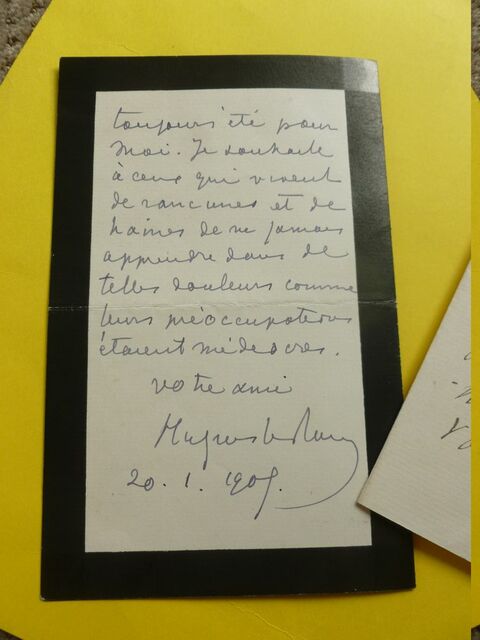 toujours été pour
moi. Je souhaite
à ceux qui vivent
de rancunes et de
haines de ne jamais
apprendre dans de
telles douleurs comme
leurs préoccupations
étaient médiocres.
votre ami
Hugues
20. 1. 1905.